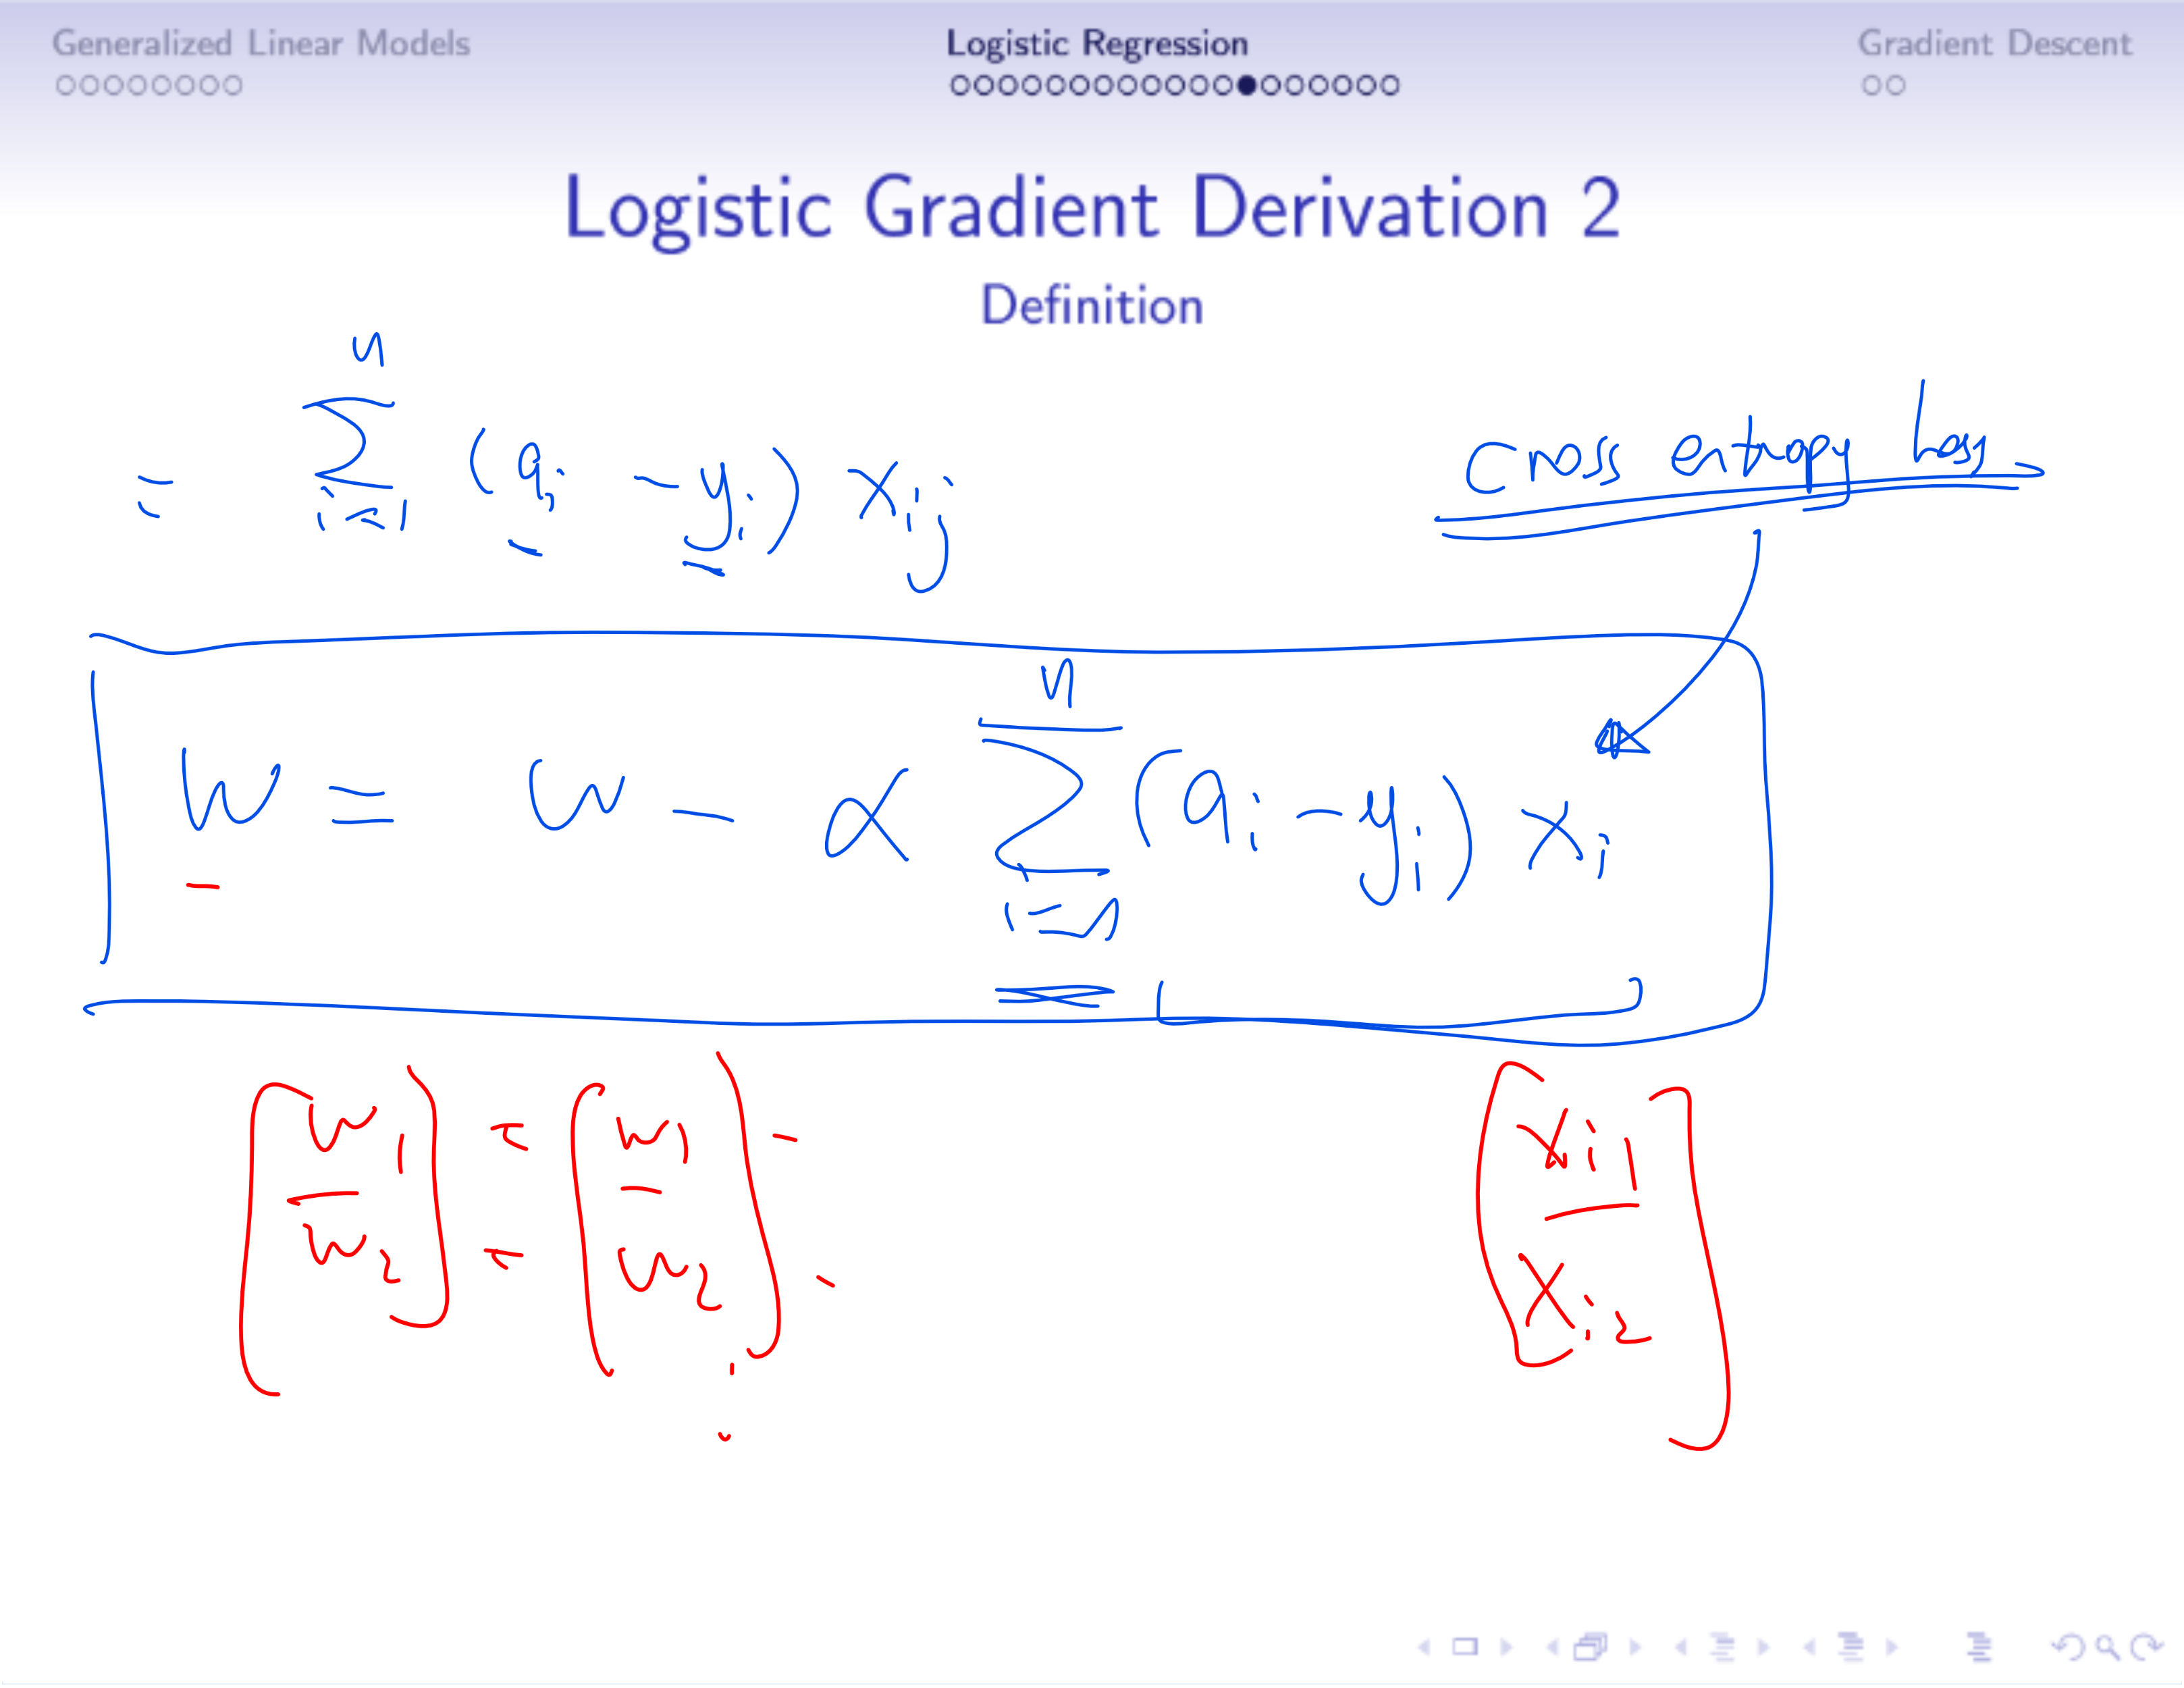 Generalized Linear Models Logistic Regression Gradient Descent
Logistic Gradient Derivation 2
Definition
= ∑_{i=1}^{n} (a_i - y_i) x_{ij}
cross entropy loss
w = w - α ∑_{i=1}^{n} (a_i - y_i) x_i
[w_1 = (w_1 - [x_{i1}
w_2] = w_2) - x_{i2}]